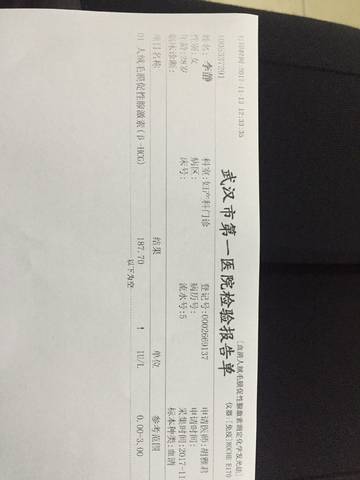 武汉市第一医院检验报告单
(血清人绒毛膜促性腺激素测定化学发光法)
仪器:(免疫)ROCHE E170
打印时间 2017-11-13 12:33:35
1005337201
姓名: 李静 科室:妇产科门诊 登记号:0002669137 申请医师:胡雅君
性别:女 病区: 病历号: 申请时间:
年龄:28岁 床号: 流水号:5 采集时间:2017-11
临床诊断: 标本种类:血清
项目名称 结果 单位 参考范围
01 人绒毛膜促性腺激素(β-HCG) 187.70 ↑ IU/L 0.00-3.00
以下为空